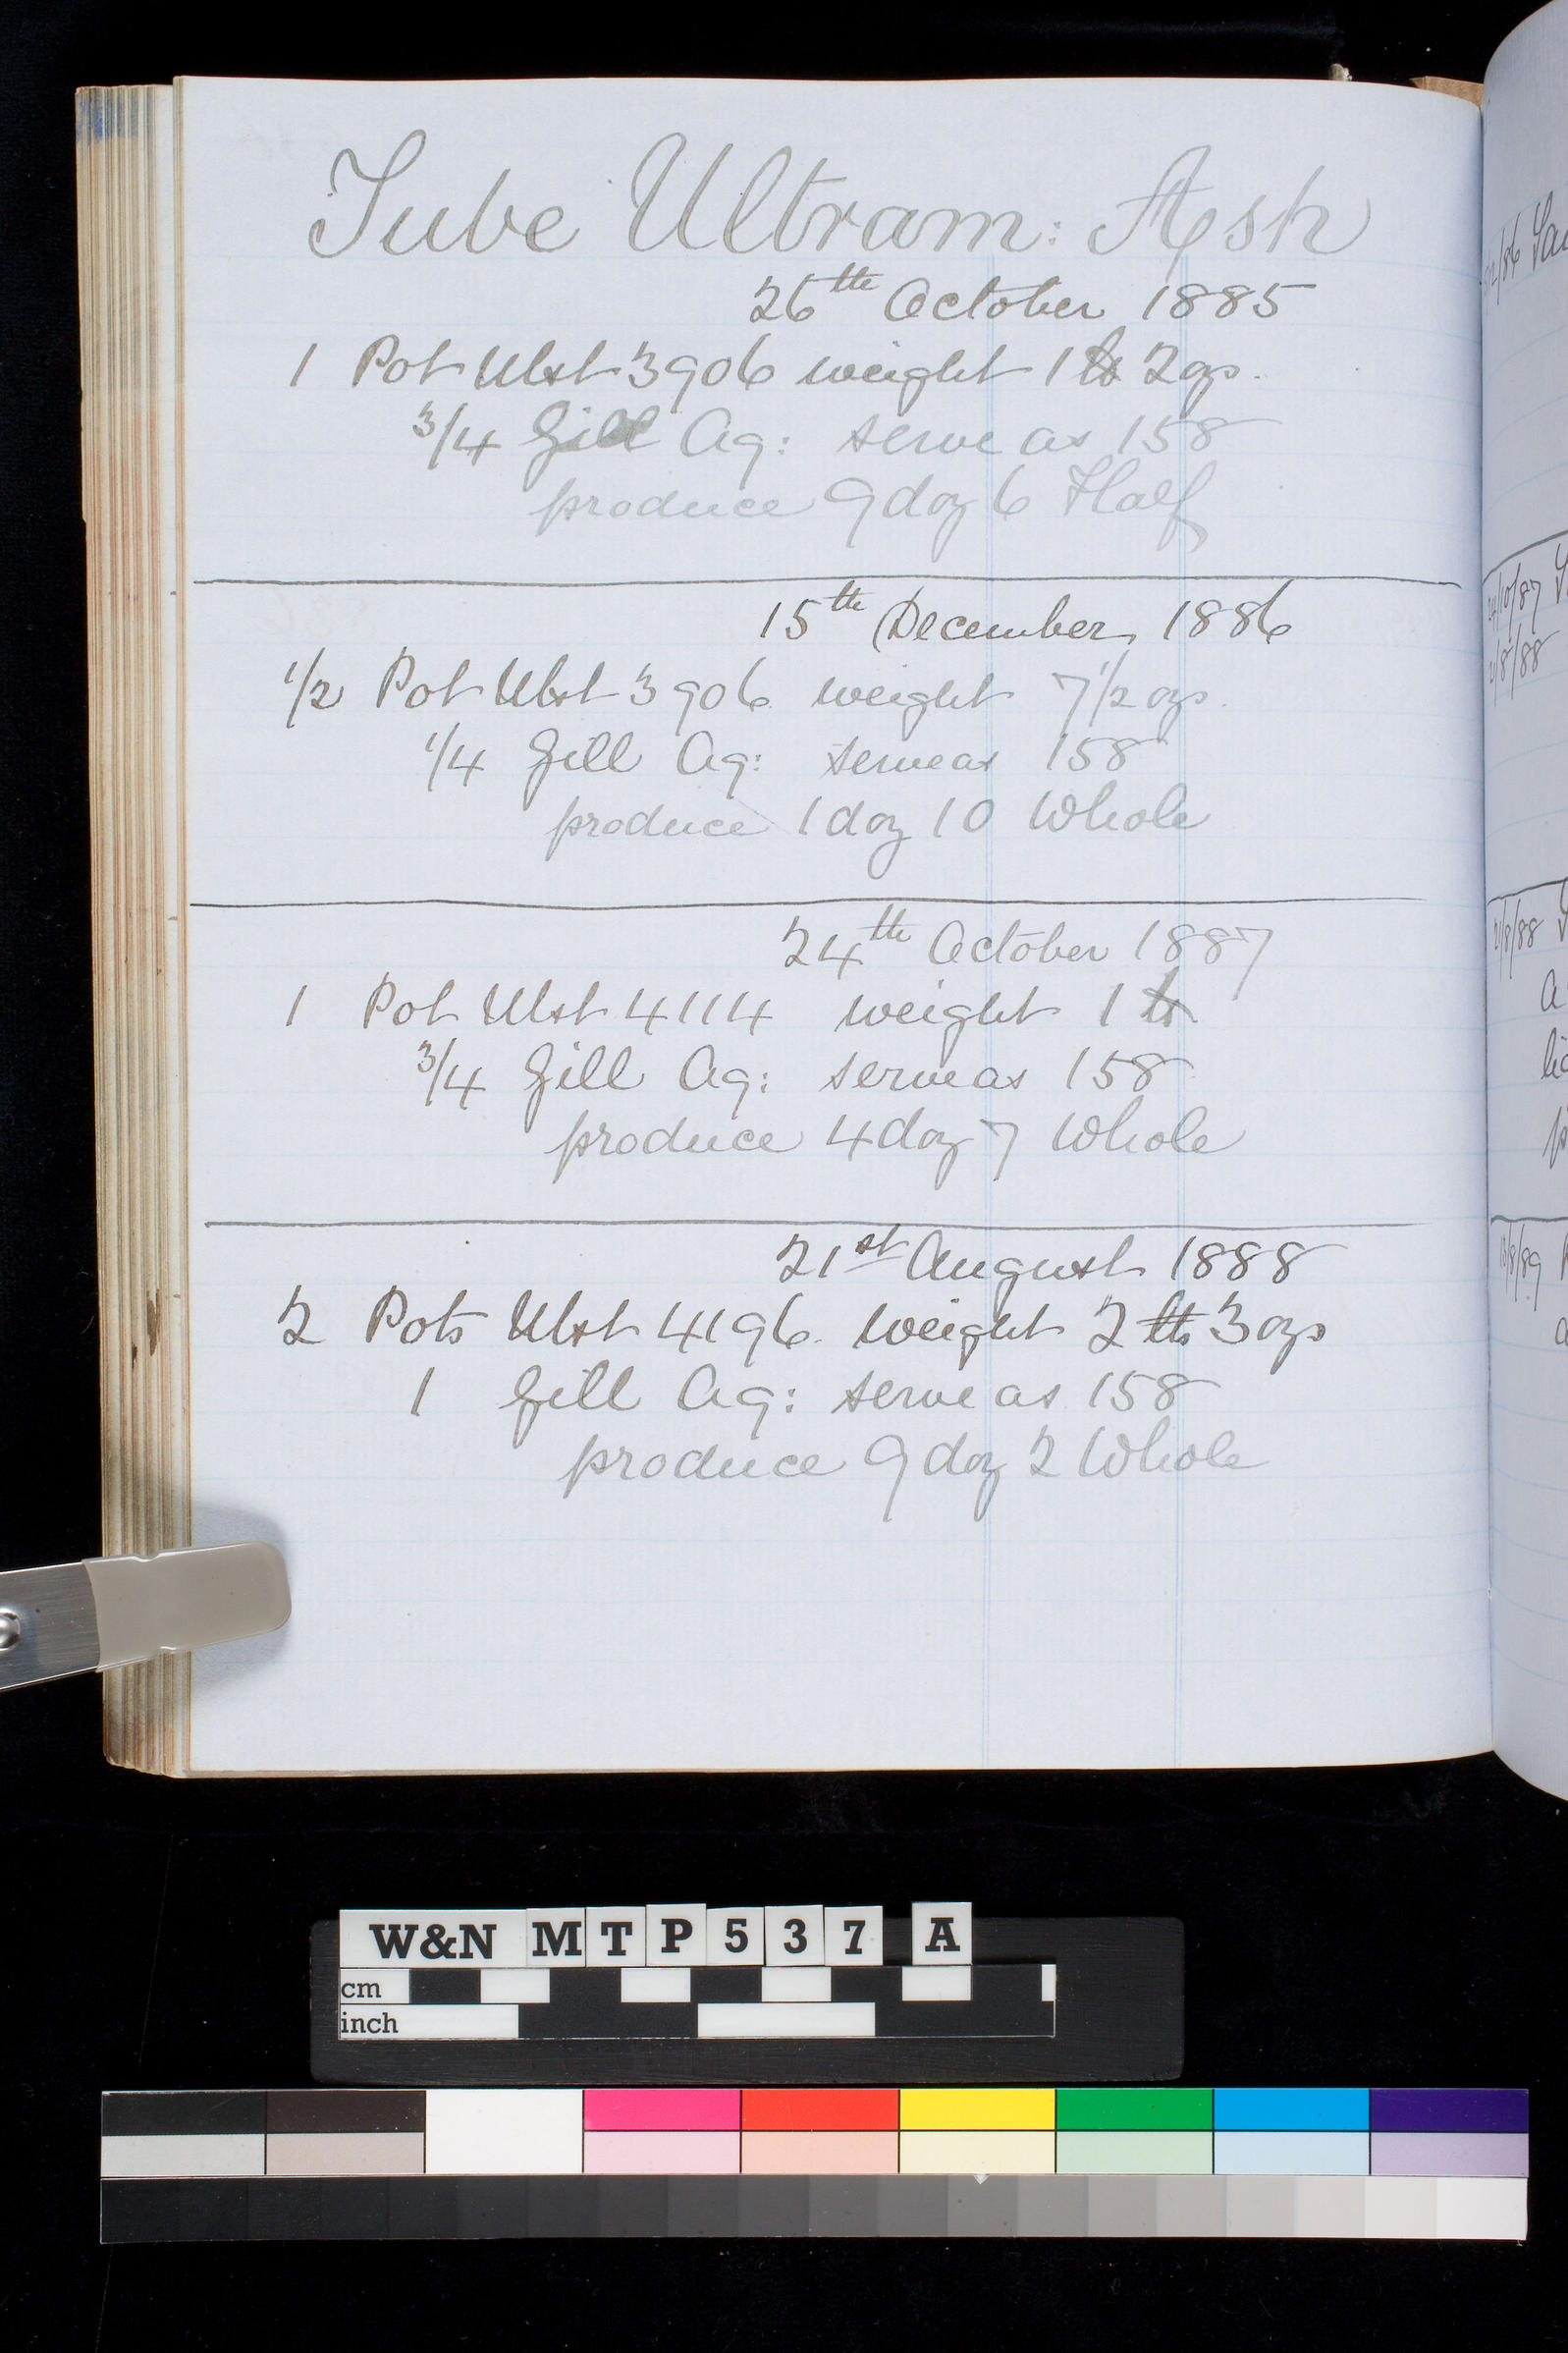 Tube Ultram: Ash
26th October 1885
1 Pot Ulst 3906 weight 1 lb 2 ozs.
3/4 Gill Aq: serve as 158
produce 9 doz 6 Half
15th December 1886
1/2 Pot Ulst 3906 weight 7 1/2 ozs.
1/4 Gill Aq: serve as 158
produce 1 doz 10 Whole
24th October 1887
1 Pot Ulst 4114 weight 1 lb
3/4 Gill Aq: serve as 158
produce 4 doz 7 Whole
21st August 1888
2 Pots Ulst 4196 weight 2 lbs 3 ozs
1 Gill Aq: serve as 158
produce 9 doz 2 Whole
24/10/87
21/8/88
21/8/88
W&N MTP537 A
cm
inch